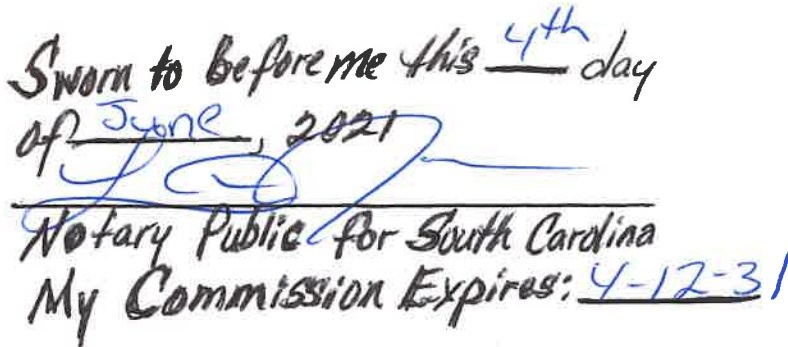 Sworn to before me this 4th day
of June, 2021
Notary Public for South Carolina
My Commission Expires: 4-12-31